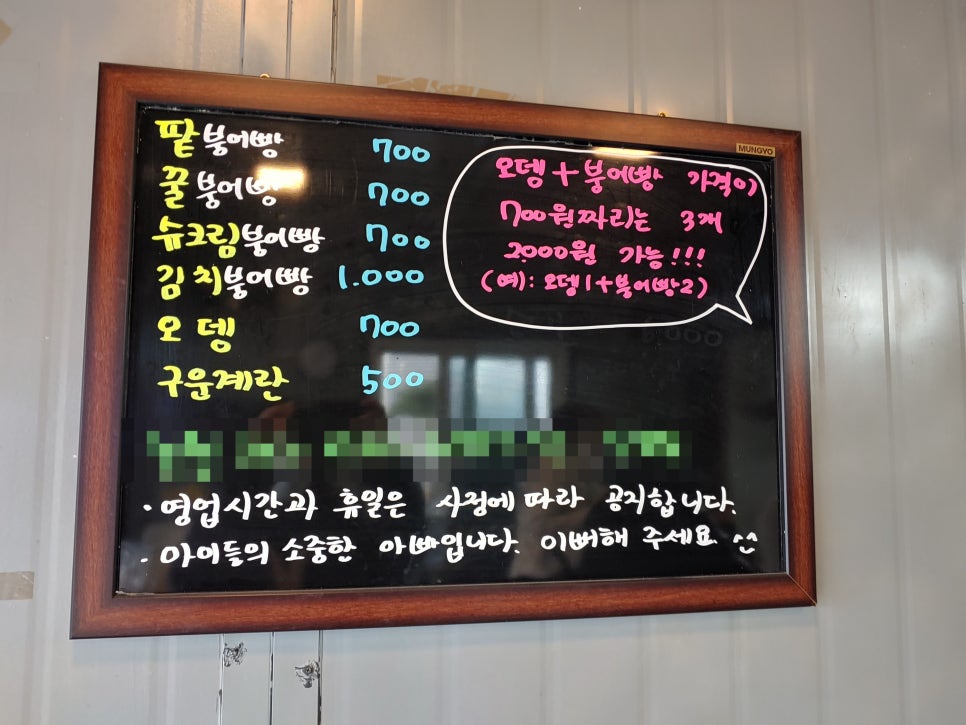 팥붕어빵 700
꿀붕어빵 700
슈크림붕어빵 700
김치붕어빵 1.000
오뎅 700
구운계란 500
MUNGYO
오뎅+붕어빵 가격이
700원짜리는 3개
2000원 가능!!!
(예): 오뎅1+붕어빵2)
· 영업시간과 휴일은 사정에 따라 공지합니다.
· 아이들의 소중한 아빠입니다. 이뻐해 주세요 ^^